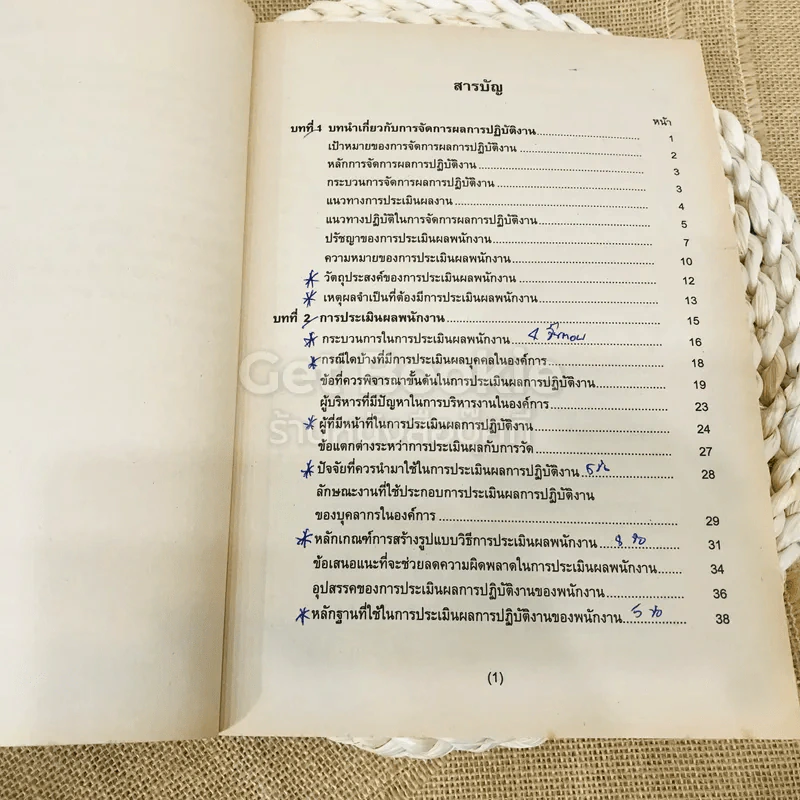 สารบัญ
หน้า
บทที่ 1 บทนำเกี่ยวกับการจัดการผลการปฏิบัติงาน 1
เป้าหมายของการจัดการผลการปฏิบัติงาน 2
หลักการจัดการผลการปฏิบัติงาน 3
กระบวนการจัดการผลการปฏิบัติงาน 3
แนวทางการประเมินผลงาน 4
แนวทางปฏิบัติในการจัดการผลการปฏิบัติงาน 5
ปรัชญาของการประเมินผลพนักงาน 7
ความหมายของการประเมินผลพนักงาน 10
วัตถุประสงค์ของการประเมินผลพนักงาน 12
เหตุผลจำเป็นที่ต้องมีการประเมินผลพนักงาน 13
บทที่ 2 การประเมินผลพนักงาน 15
กระบวนการในการประเมินผลพนักงาน 4 ขั้นตอน 16
กรณีใดบ้างที่มีการประเมินผลบุคคลในองค์การ 18
ข้อที่ควรพิจารณาขั้นต้นในการประเมินผลการปฏิบัติงาน 19
ผู้บริหารที่มีปัญหาในการบริหารงานในองค์การ 23
ผู้ที่มีหน้าที่ในการประเมินผลการปฏิบัติงาน 24
ข้อแตกต่างระหว่างการประเมินผลกับการวัด 27
ปัจจัยที่ควรนำมาใช้ในการประเมินผลการปฏิบัติงาน 28
ลักษณะงานที่ใช้ประกอบการประเมินผลการปฏิบัติงาน
ของบุคลากรในองค์การ 29
หลักเกณฑ์การสร้างรูปแบบวิธีการประเมินผลพนักงาน 8 ข้อ 31
ข้อเสนอแนะที่จะช่วยลดความผิดพลาดในการประเมินผลพนักงาน 34
อุปสรรคของการประเมินผลการปฏิบัติงานของพนักงาน 36
หลักฐานที่ใช้ในการประเมินผลการปฏิบัติงานของพนักงาน 5 ข้อ 38
(1)